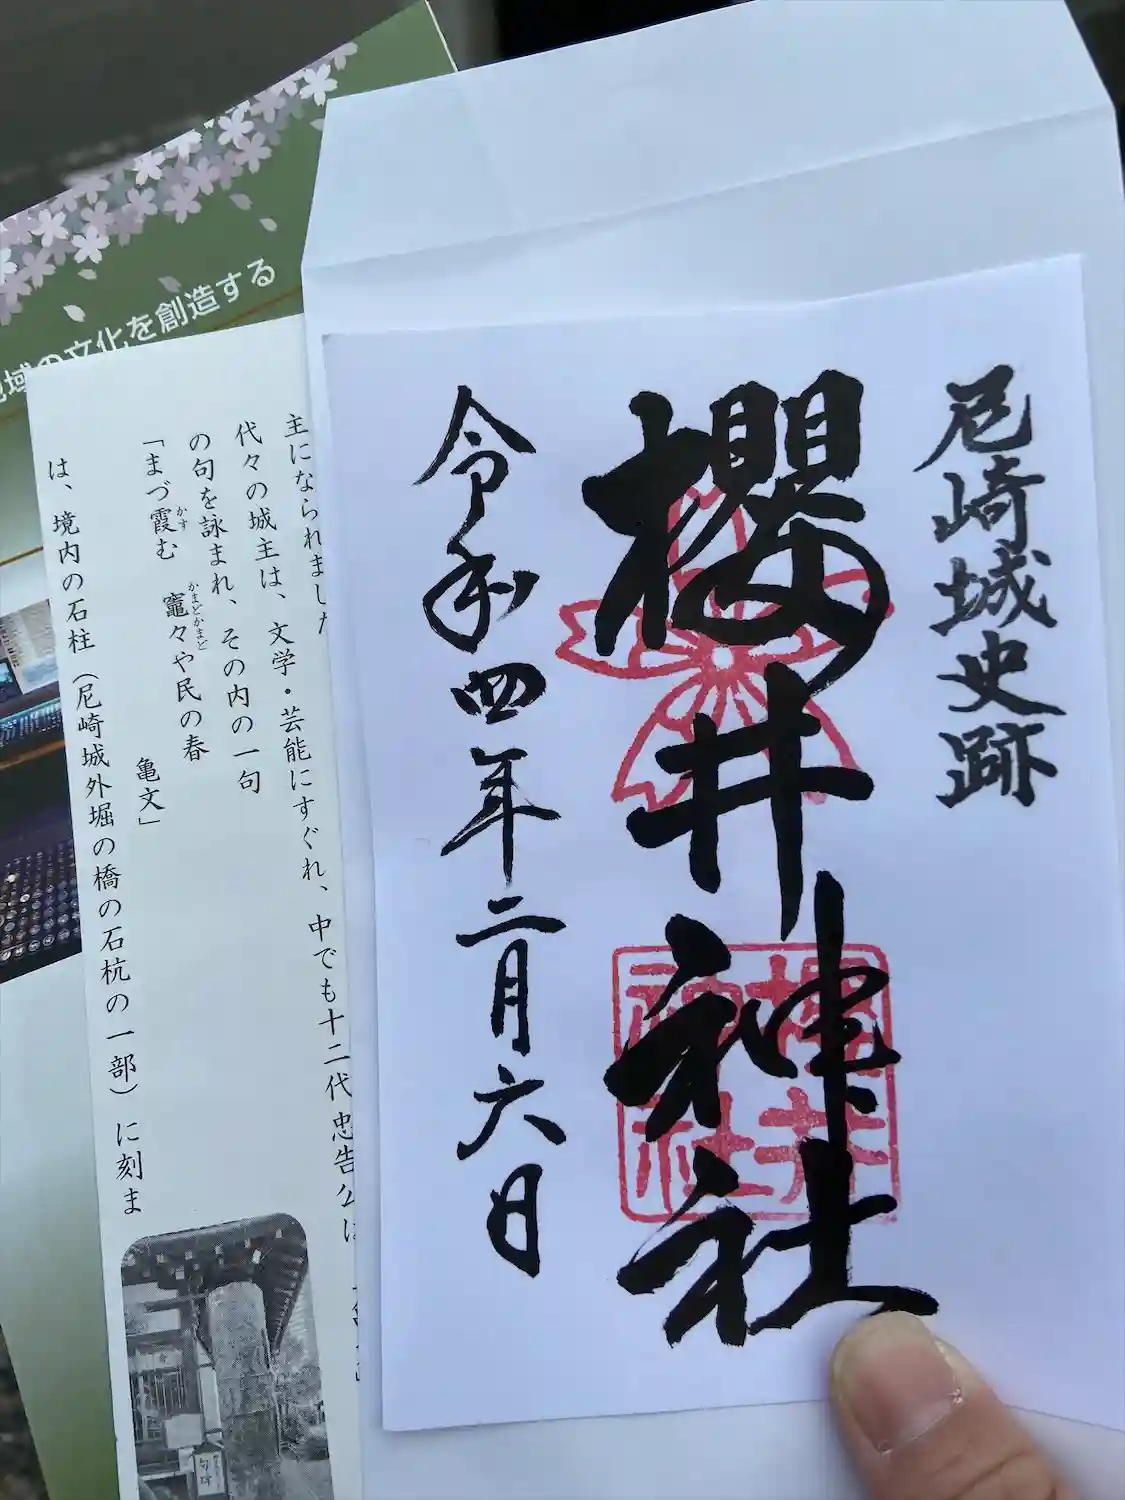 尼崎城史跡
櫻井神社
令和四年二月六日
櫻井
神社
の文化を創造する
主になられました
代々の城主は、文学・芸能にすぐれ、中でも十二代忠告公は
の句を詠まれ、その内の一句
「まづ霞む 竈々や民の春
かす
かまどかまど
亀文」
は、境内の石柱(尼崎城外堀の橋の石杭の一部)に刻ま
句碑